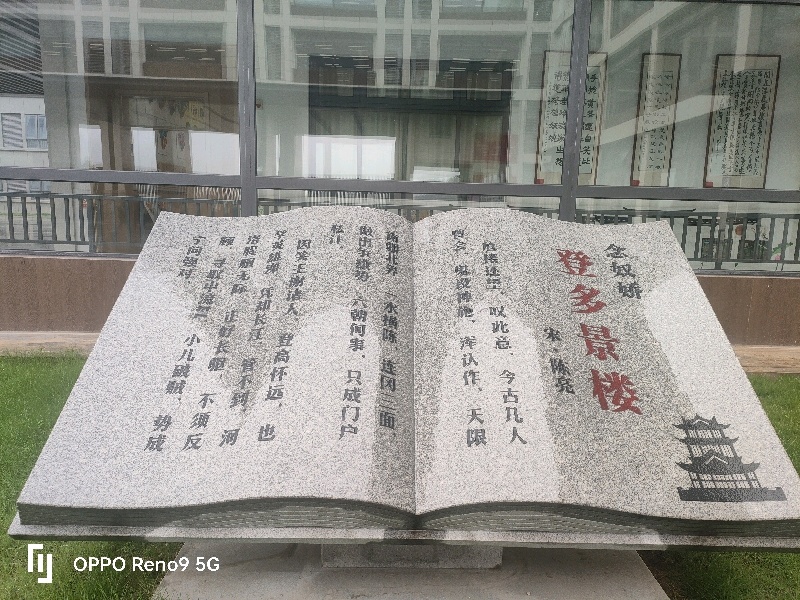 念奴娇
登多景楼
宋·陈亮
危楼还望，叹此意、今古几人
曾会。鬼设神施，浑认作、天限
南疆北界。一水横陈，连冈三面，
做出争雄势。六朝何事，只成门户
私计。
因笑王谢诸人，登高怀远，也
学英雄涕。凭却长江，管不到，河
洛腥膻无际。正好长驱，不须反
顾，寻取中流誓。小儿破贼，势成
宁问强对。
OPPO Reno9 5G